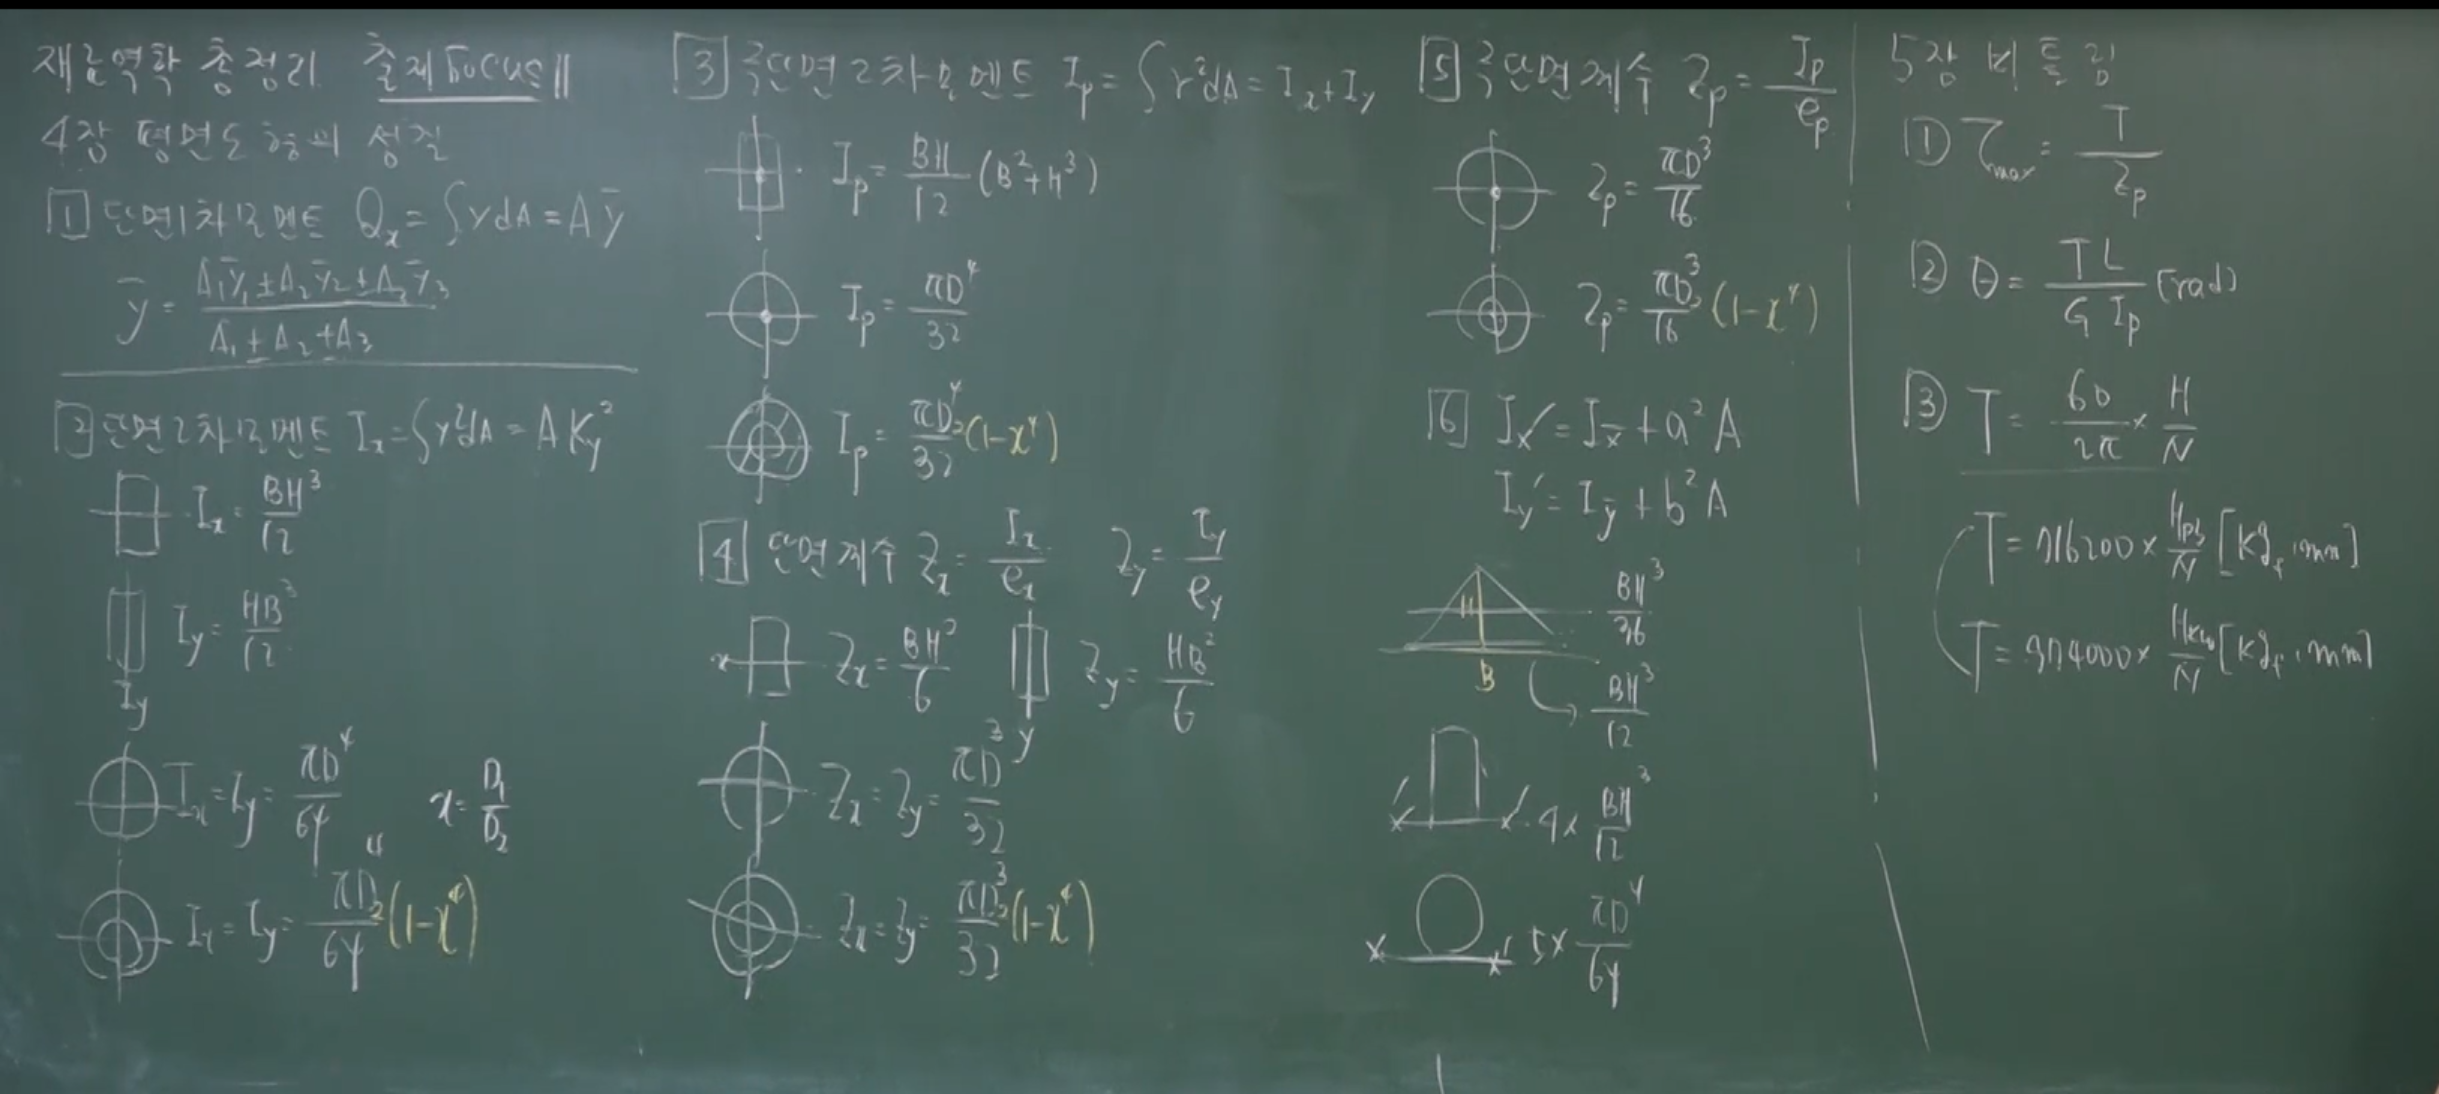 재료역학 총정리 출제 Focus II
4장 평면도형의 성질
[1] 단면1차모멘트 Qx = ∫ydA = Aȳ
ȳ = (A₁ȳ₁ ± A₂ȳ₂ ± A₃ȳ₃) / (A₁ ± A₂ + A₃)
[2] 단면2차모멘트 Ix = ∫y²dA = AKy²
Ix = BH³/12
Iy = HB³/12
Iy
Ix = Iy = πD⁴/64
x = D₁/D₂
Ix = Iy = πD₂⁴/64 (1-x⁴)
[3] 극단면2차모멘트 Ip = ∫r²dA = Ix + Iy
Ip = BH/12 (B²+H³)
Ip = πD⁴/32
Ip = πD₂⁴/32 (1-x⁴)
[4] 단면계수 Zx = Ix/ex Zy = Iy/ey
x Zx = BH²/6 y Zy = HB²/6
Zx = Zy = πD³/32
Zx = Zy = πD₂³/32 (1-x⁴)
[5] 극단면계수 Zp = Ip/ep
Zp = πD³/16
Zp = πD₂³/16 (1-x⁴)
[6] Ix′ = Ix̄ + a²A
Iy′ = Iȳ + b²A
H BH³/36
B BH³/12
x x′ 4× BH³/12
x x′ 5× πD⁴/64
5장 비틀림
① τmax = T/Zp
② θ = TL/GIp (rad)
③ T = 60/2π × H/N
T = 716200 × Hps/N [kgf·mm]
T = 974000 × Hkw/N [kgf·mm]